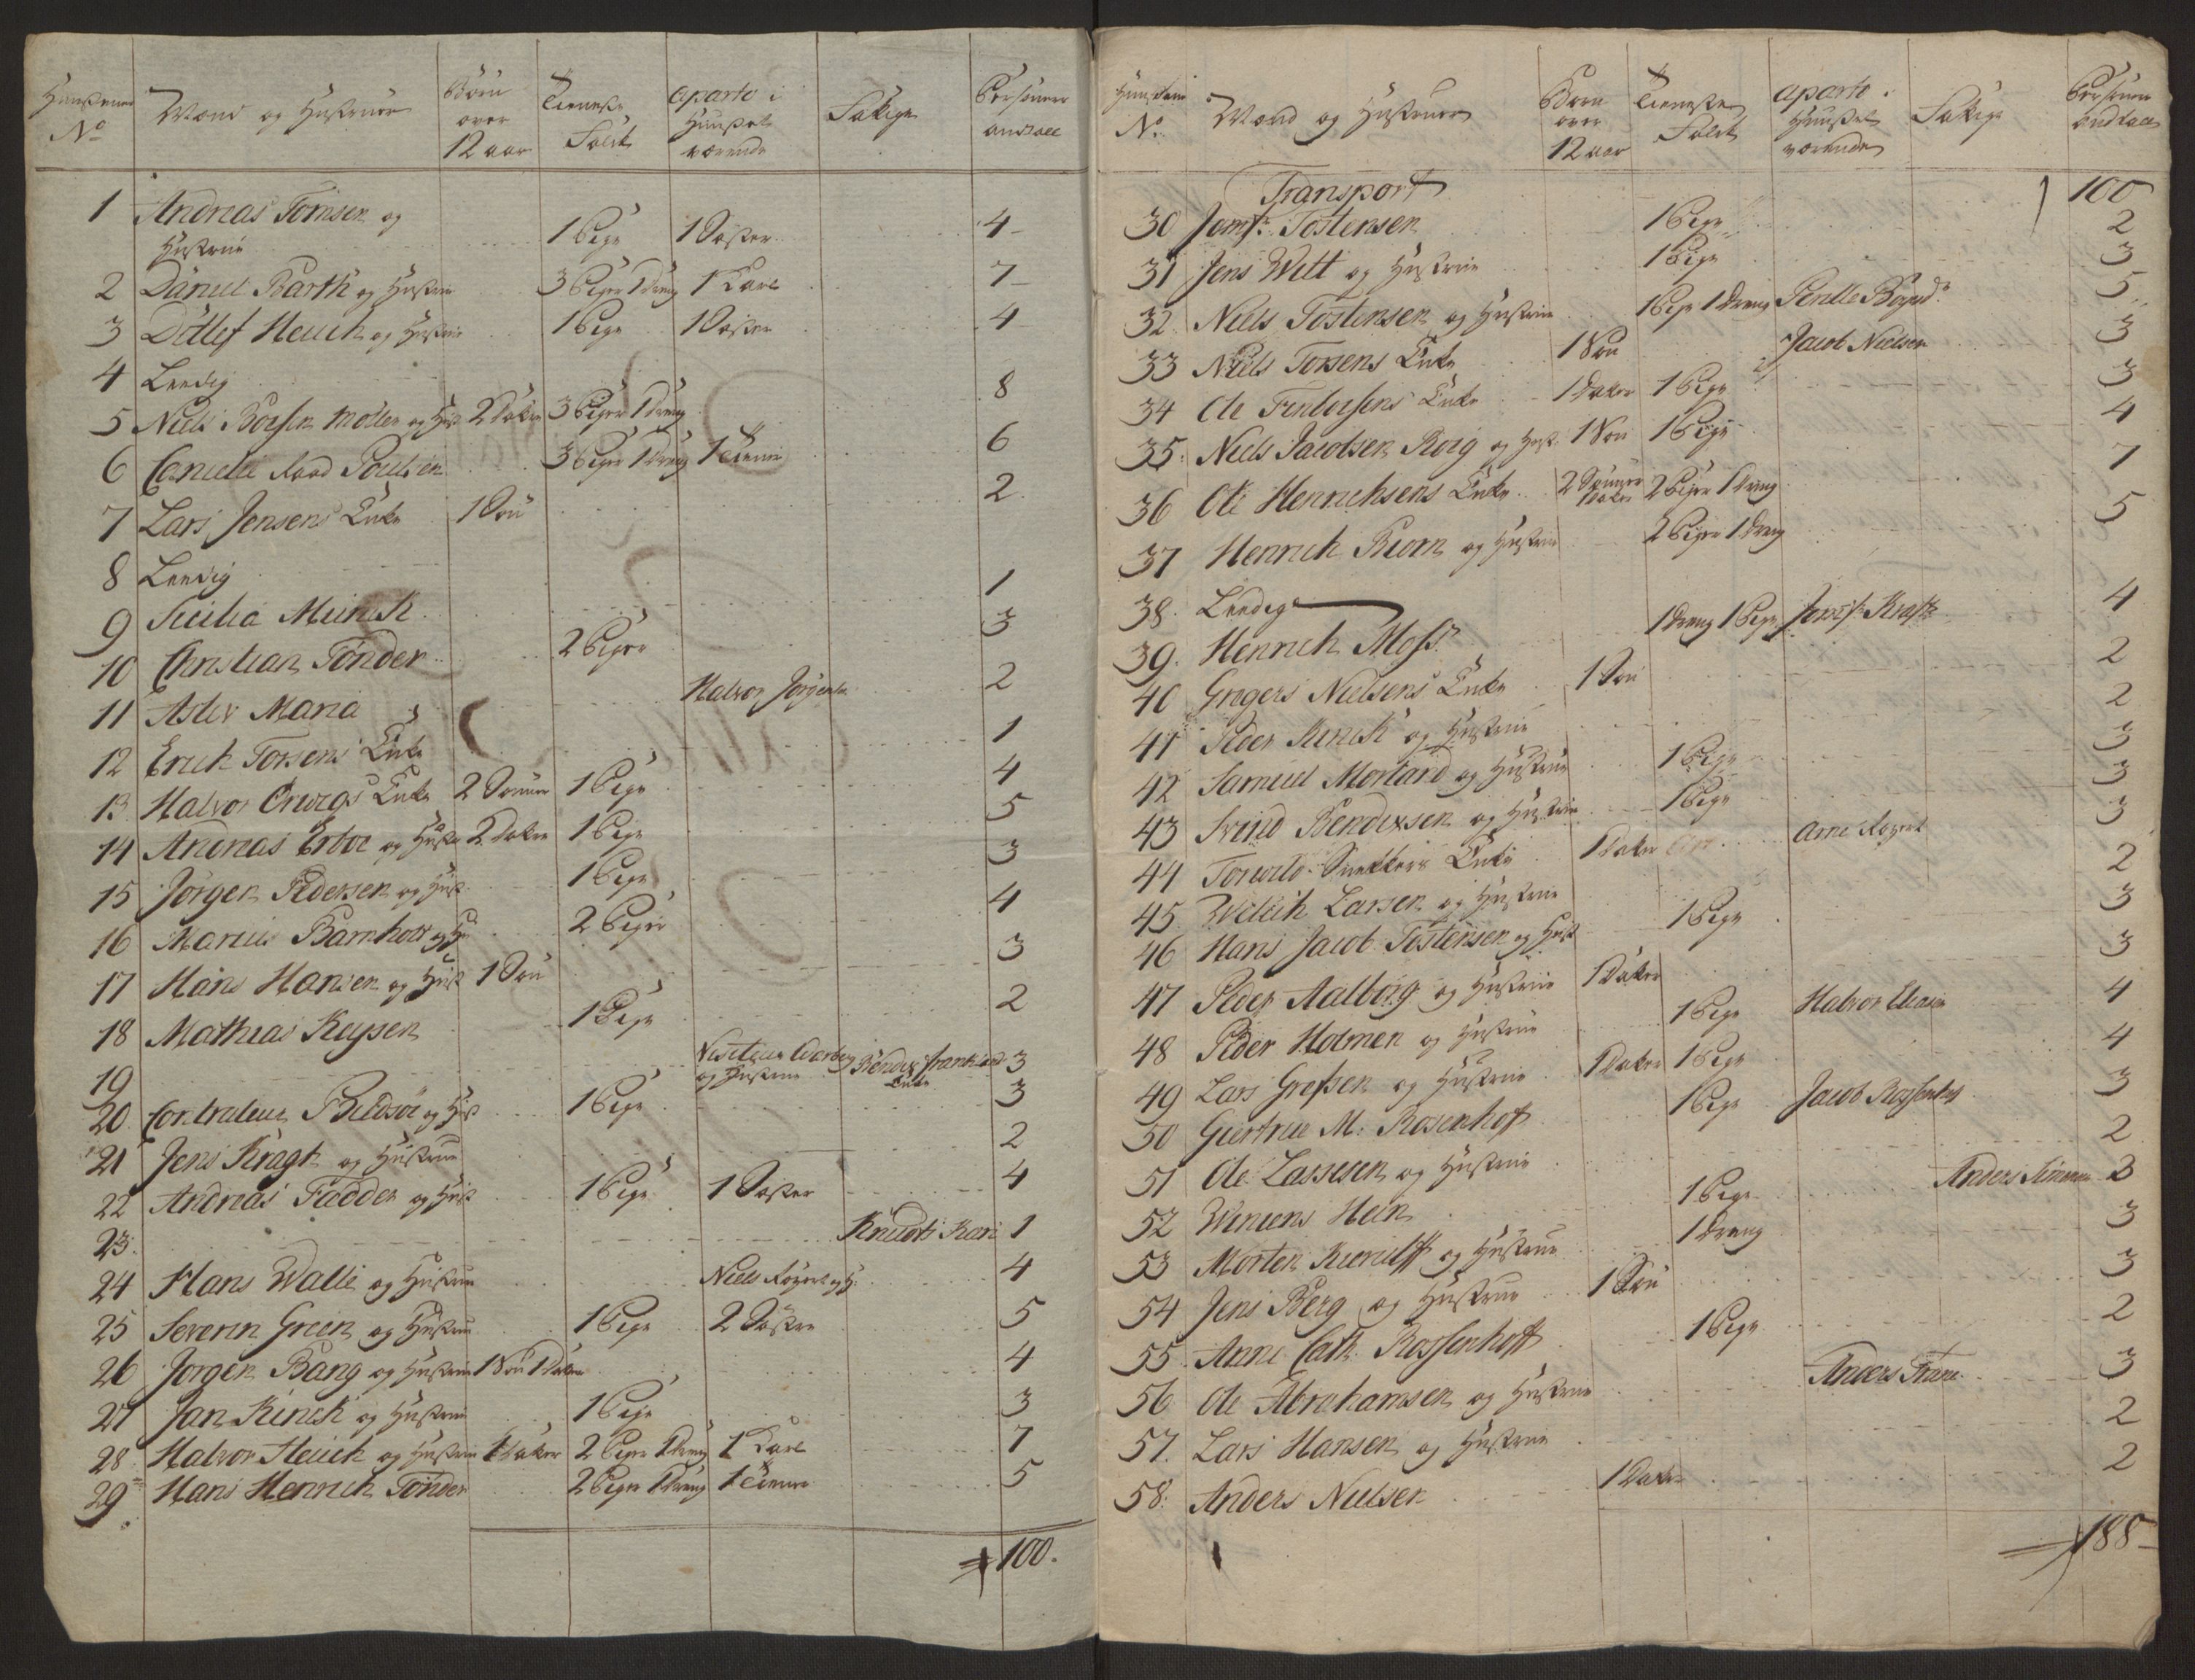 Huusenes No | Mand og Hustruer | Børn over 12 aar | Tieneste Folck | aparte i Huuset værende | Fattige | Persouner andtall
1 Andreas Tomsen og Hustrue 1 Pige 1 Søster 4
2 Daniel Barth og Hustrue 3 Piger 1 dreng 1 Karl 7
3 Ditlef Heuch og Hustrue 1 Pige 1 Søster 4
4 Leedig
5 Niels Boesen Møller og Hust 2 Døtre 3 Piger 1 dreng 8
6 Raad Poulsen 3 Piger 1 dreng 1 Tiener 6
7 Lars Jensens Enke 1 Søn 2
8 Leedig
9 Sicilia Munck 1
10 Christian Tønder 2 Piger 3
11 Maria Halvor Jørgensen 2
12 Erich Torsens Enke 1
13 Halvor Enke 2 Sønner 1 Pige 4
14 Andreas Erboe og Hust 2 Døtre 1 Pige 5
15 Jørgen Pedersen og Hust 1 Pige 3
16 Marcus Barnholt og Hu 2 Piger 4
17 Hans Hansen og Hust 1 Søn 3
18 Mathias Keysen 1 Pige 2
19 Visiteur og Hustrue Bendix Enke 3
20 Contraleur og Hust 1 Pige 3
21 Jens Kragh og Hustrue 2
22 Andreas Fadder og Hust 1 Pige 1 Søster 4
23 Knudts Kari 1
24 Hans Walle og Hustrue Niels og H: 4
25 Severin Green og Hustrue 1 Pige 2 Søstre 5
26 Jørgen Bang og Hustrue 1 Søn 1 Datter 4
27 Jan Kinck og Hustrue 1 Pige 3
28 Halvor Heuch og Hustrue 1 Datter 2 Piger 1 dreng 1 Karl 7
29 Hans Henrich Tønder 2 Piger 1 dreng 1 Tiener 5
100.
Huusenes No. | Mand og Hustruer | Børn over 12 aar | Tieneste Folck | aparte i Huuset værende | Fattige | Persouner andtall
Transport 100
30 Jomfr. Tostensen 1 Pige 2
31 Jens Witt og Hustrue 1 Pige 3
32 Niels Tostensen og Hustrue 1 Pige 1 dreng 5
33 Niels Torsens Enke 1 Søn Jacob Nielsen 3
34 Ole Enke 1 Datter 1 Pige 3
35 Niels Jacobsen Roig og Hust 1 Søn 1 Pige 4
36 Ole Henrichsens Enke 2 Sønner 1 Datter 2 Piger 1 dreng 7
37 Henrich Biørn og Hustrue 2 Piger 1 dreng 5
38 Leedig
39 Henrich Moss 1 dreng 1 Pige Jomfr. Kraft 4
40 Gregers Nielsens Enke 1 Søn 2
41 Peder Kinck og Hustrue 2
42 Samuel Mortand og Hustrue 1 Pige 3
43 Svend Bendixsen og Hustrue 1 Pige 3
44 Snekkers Enke 1 Datter Arne 3
45 Willich Larsen og Hustrue 2
46 Hans Jacob Tostensen og Hust 1 Pige 3
47 Peder Aalborg og Hustrue 1 Datter 3
48 Peder Holmen og Hustrue 1 Pige Halvor 4
49 Lars Gressen og Hustrue 1 Datter 1 Pige 4
50 Giertrue M: Rosenhoff 1 Pige Jacob 3
51 Ole Lassesen og Hustrue 2
52 Hein 1 Pige Anders 3
53 Morten Kierulff og Hustrue 1 dreng 3
54 Jens Berg og Hustrue 1 Søn 3
55 Anne Cath. Rossenhoff 1 Pige 2
56 Ole Abrahamsen og Hustrue Anders 3
57 Lars Hansen og Hustrue 2
58 Anders Nielsen 1 Datter 2
188